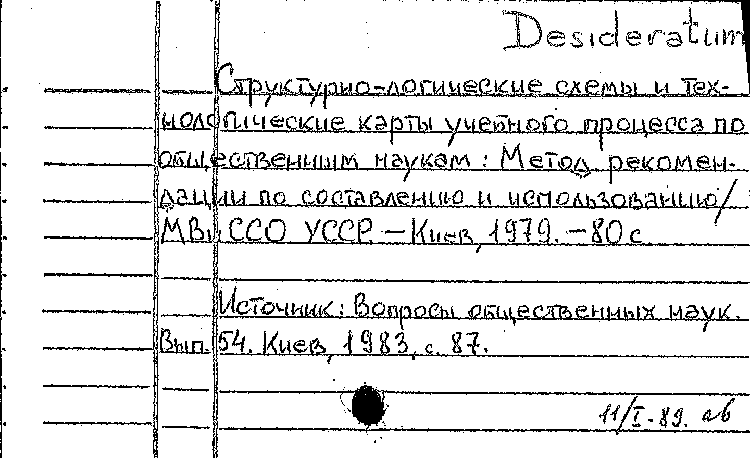 Desideratum
Структурно-логические схемы и тех-
нологические карты учебного процесса по
общественным наукам: Метод. рекомен-
дации по составлению и использованию/
МВиССО УССР. — Киев, 1979. — 80 с.
Источник: Вопросы общественных наук.
Вып. 54. Киев, 1983, с. 87.
11/I-89. ав